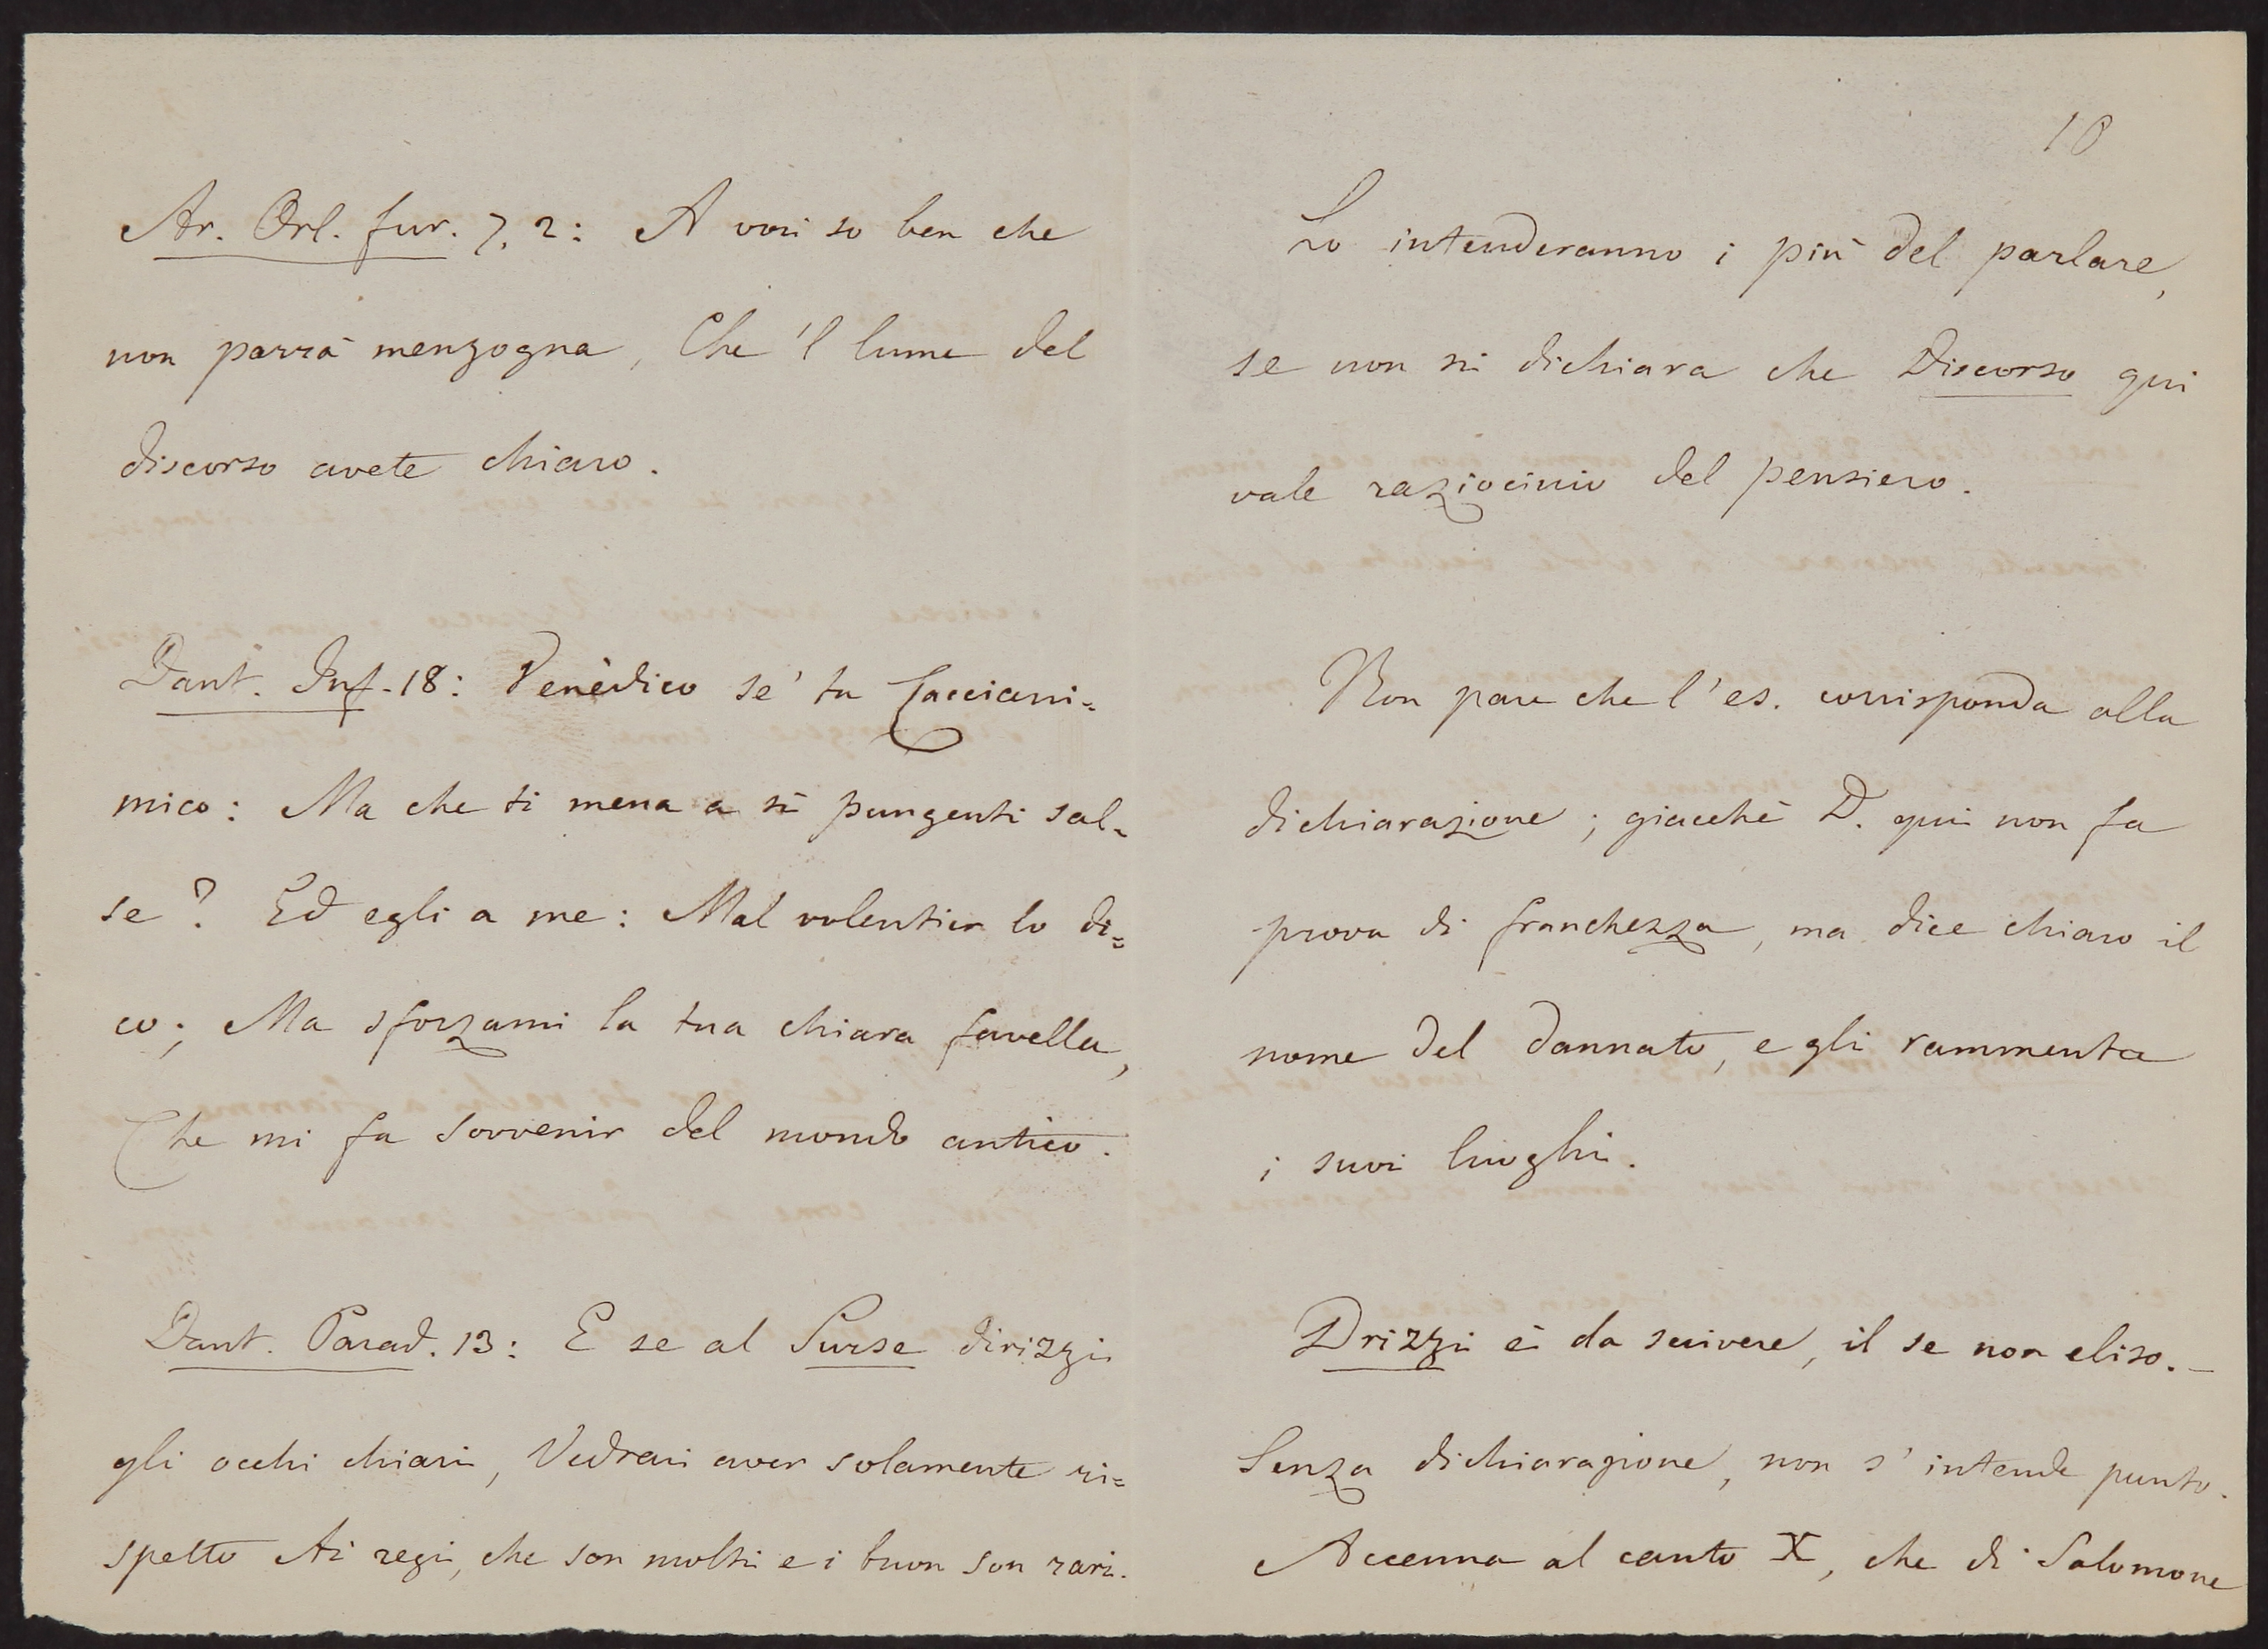 Ar. Orl. fur. 7, 2: A voi so ben che
non parrà menzogna, Che 'l lume del
discorso avete chiaro.
Dant. Inf. 18: Venèdico se' tu Cacciani=
mico: Ma che ti mena a sì pungenti sal=
se? Ed egli a me: Mal volentier lo di=
co; Ma sforzami la tua chiara favella,
Che mi fa sovvenir del mondo antico.
Dant. Parad. 13: E se al Surse dirizzi
gli occhi chiari, Vedrai aver solamente ri=
spetto Ai regi, che son molti e i buon son rari.
10
Lo intenderanno i più del parlare,
se non si dichiara che Discorso qui
vale raziocinio del pensiero.
Non pare che l'es. corrisponda alla
dichiarazione; giacchè D. qui non fa
prova di franchezza, ma dice chiaro il
nome del dannato, e gli rammenta
i suoi luoghi.
Drizzi è da scrivere, il se non eliso. –
Senza dichiarazione, non s'intende punto.
Accenna al canto X, che di Salomone